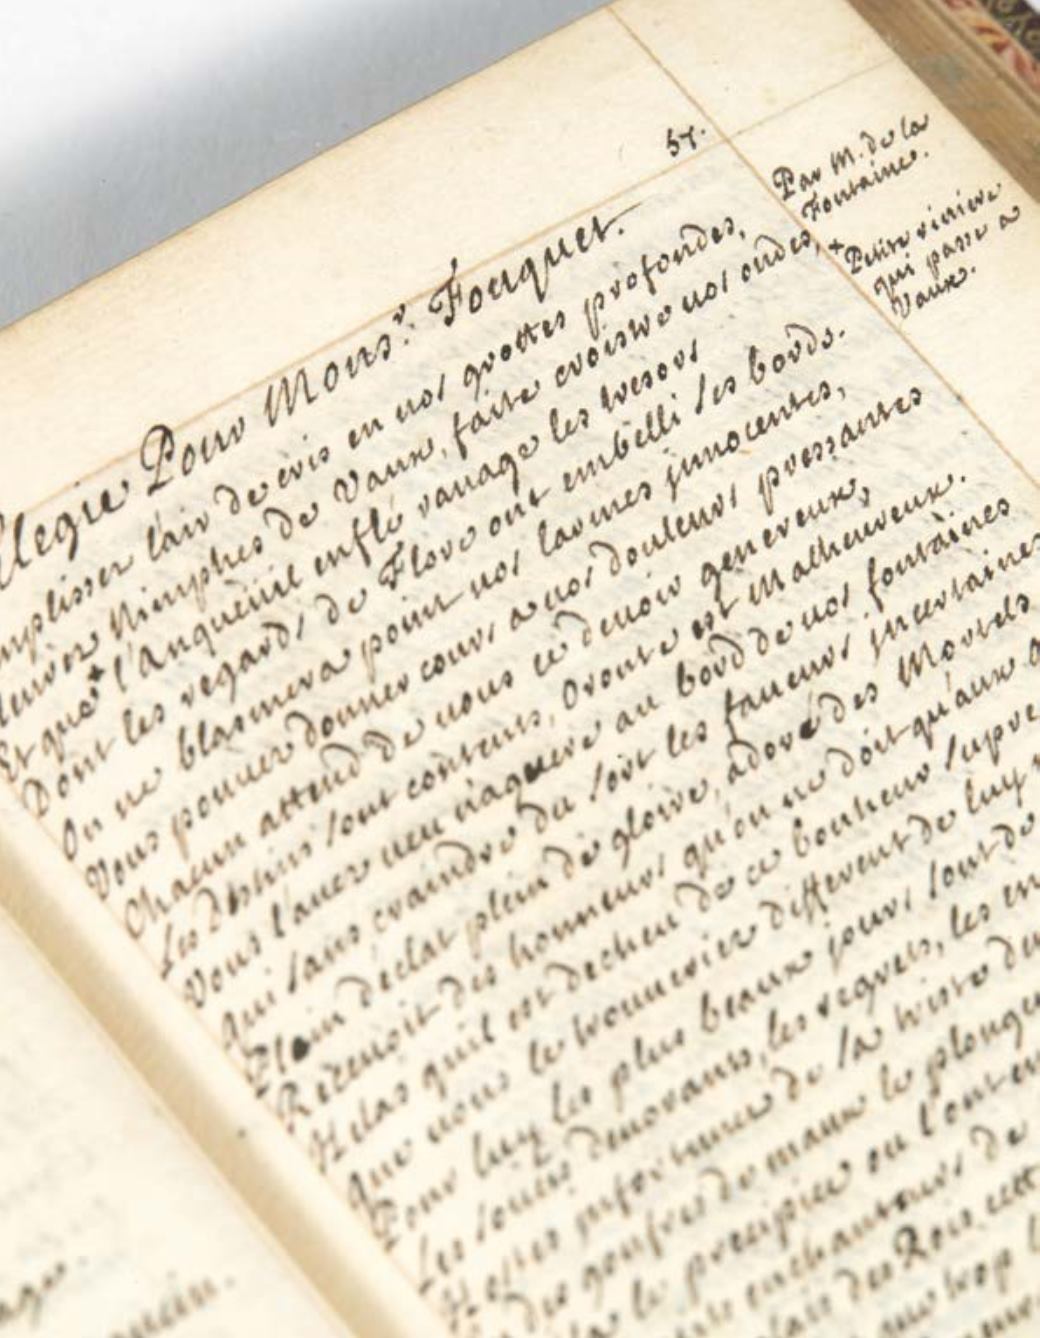 57.
Elegie Pour Mons.r Fouquet.
Par M. de la
Fontaine.
Remplissez l'air de cris en vos grottes profondes,
Pleurez Nimphes de Vaux, faite croistre vos ondes,+
+ Petite riviere
qui passe a
Vaux.
Et que + l'Anqueuil enflé ravage les tresors
Dont les regards de Flore ont embelli ses bords.
On ne blasmera point vos larmes jnnocentes,
Vous pouvez donner cours a vos douleurs pressantes
Chacun attend de vous ce devoir genereux,
Les Destins sont contents, Oronte est Malheureux.
Vous l'avez veu naguere au bord de vos fontaines
Qui sans craindre du sort les faveurs jncertaines
Plein d'eclat plein de gloire, adoré des Mortels
Recevoit des honneurs qu'on ne doit qu'aux
Helas qu'il est decheu de ce bonheur supre
Que vous le trouveriez different de luy
Pour luy les plus beaux jours sont de
Les soucis devorans, les regrets, les en
Hostes infortunez de sa triste de
des goufres de maux le plonge
le precipice ou l'ont en
enchanteurs de
des Rois cett
trop